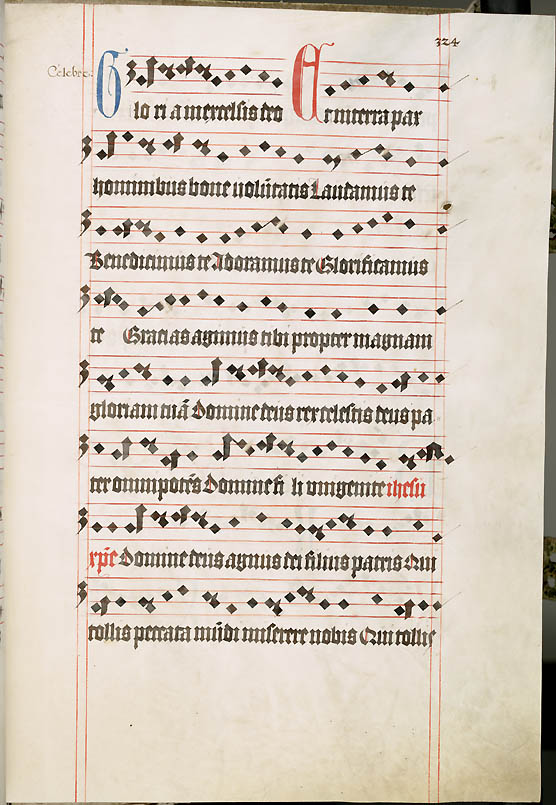 324
Celebre.
Glo ri a in excelsis deo Et in terra pax
hominibus bone volūtatis Laudamus te
Benedicimus te Adoramus te Glorificamus
te Gracias agimus tibi propter magnam
gloriam tuā Domine deus rex celestis deus pa
ter omnipotēs Domine fi li unigenite ihesu
xp̄e Domine deus agnus dei filius patris Qui
tollis peccata mūdi miserere nobis Qui tollis